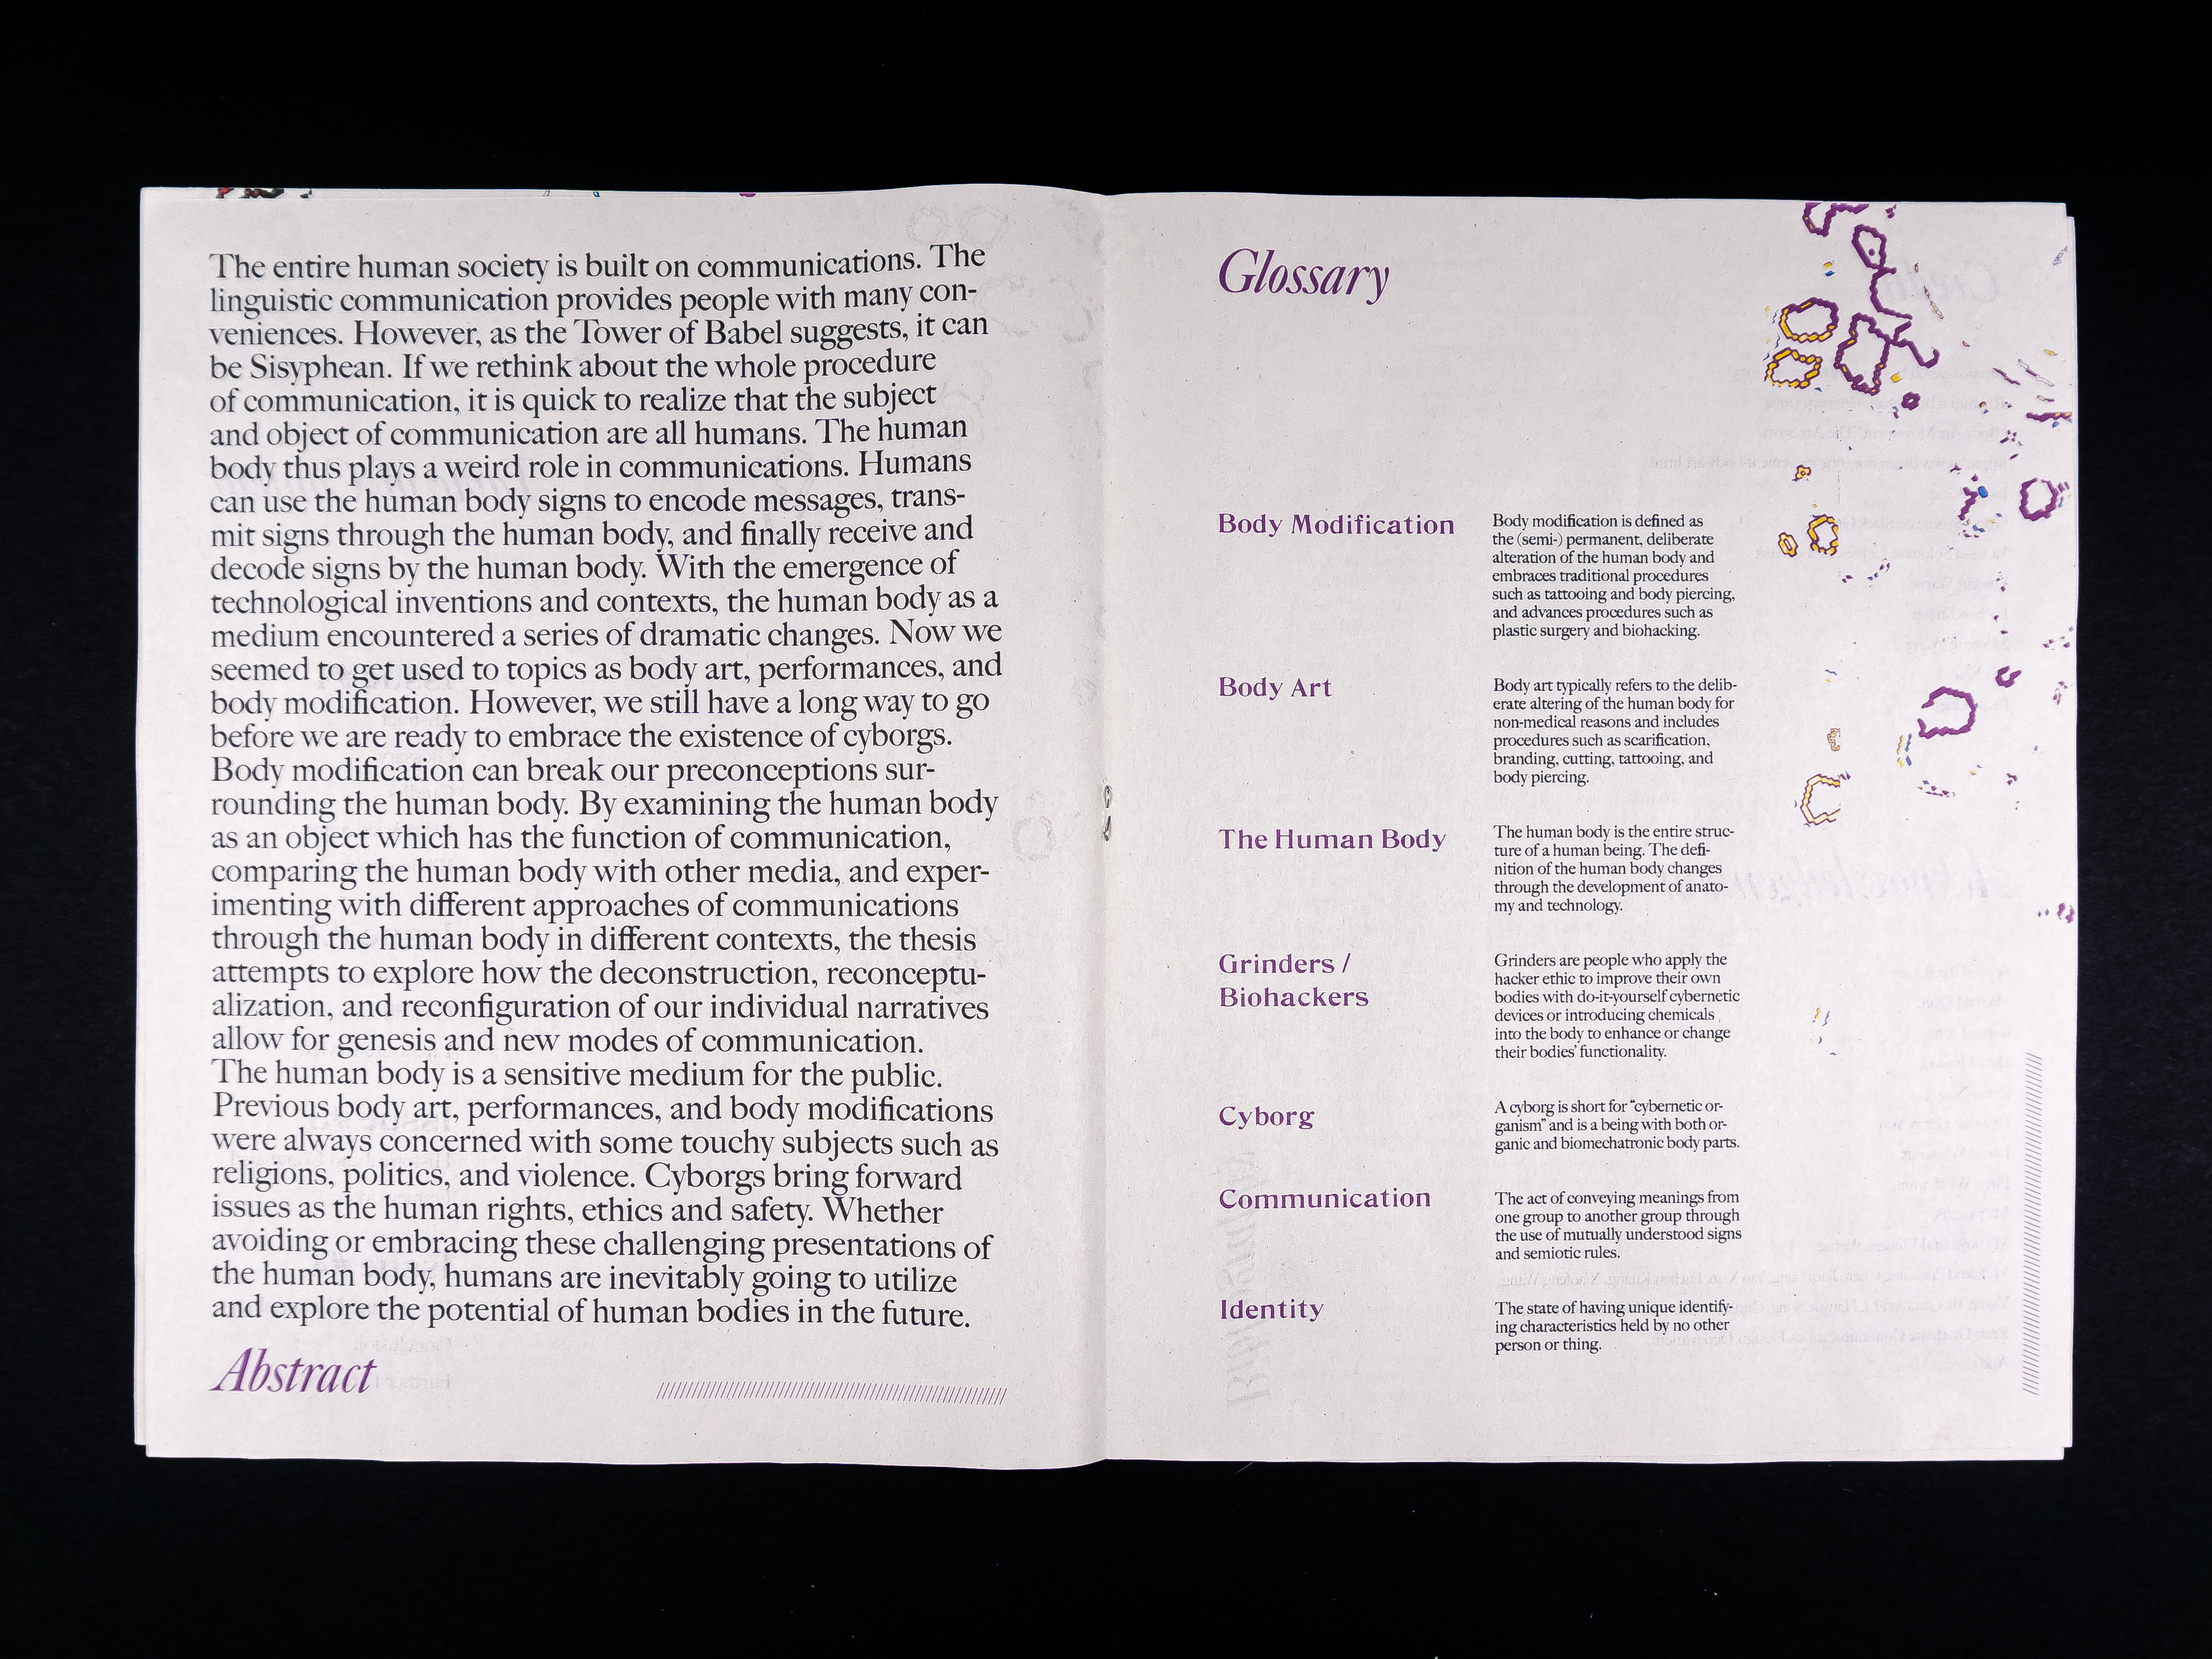 The entire human society is built on communications. The
linguistic communication provides people with many con-
veniences. However, as the Tower of Babel suggests, it can
be Sisyphean. If we rethink about the whole procedure
of communication, it is quick to realize that the subject
and object of communication are all humans. The human
body thus plays a weird role in communications. Humans
can use the human body signs to encode messages, trans-
mit signs through the human body, and finally receive and
decode signs by the human body. With the emergence of
technological inventions and contexts, the human body as a
medium encountered a series of dramatic changes. Now we
seemed to get used to topics as body art, performances, and
body modification. However, we still have a long way to go
before we are ready to embrace the existence of cyborgs.
Body modification can break our preconceptions sur-
rounding the human body. By examining the human body
as an object which has the function of communication,
comparing the human body with other media, and exper-
imenting with different approaches of communications
through the human body in different contexts, the thesis
attempts to explore how the deconstruction, reconceptu-
alization, and reconfiguration of our individual narratives
allow for genesis and new modes of communication.
The human body is a sensitive medium for the public.
Previous body art, performances, and body modifications
were always concerned with some touchy subjects such as
religions, politics, and violence. Cyborgs bring forward
issues as the human rights, ethics and safety. Whether
avoiding or embracing these challenging presentations of
the human body, humans are inevitably going to utilize
and explore the potential of human bodies in the future.
Abstract
Glossary
Body Modification
Body modification is defined as
the (semi-) permanent, deliberate
alteration of the human body and
embraces traditional procedures
such as tattooing and body piercing,
and advances procedures such as
plastic surgery and biohacking.
Body Art
Body art typically refers to the delib-
erate altering of the human body for
non-medical reasons and includes
procedures such as scarification,
branding, cutting, tattooing, and
body piercing.
The Human Body
The human body is the entire struc-
ture of a human being. The defi-
nition of the human body changes
through the development of anato-
my and technology.
Grinders /
Biohackers
Grinders are people who apply the
hacker ethic to improve their own
bodies with do-it-yourself cybernetic
devices or introducing chemicals
into the body to enhance or change
their bodies' functionality.
Cyborg
A cyborg is short for “cybernetic or-
ganism” and is a being with both or-
ganic and biomechatronic body parts.
Communication
The act of conveying meanings from
one group to another group through
the use of mutually understood signs
and semiotic rules.
Identity
The state of having unique identify-
ing characteristics held by no other
person or thing.